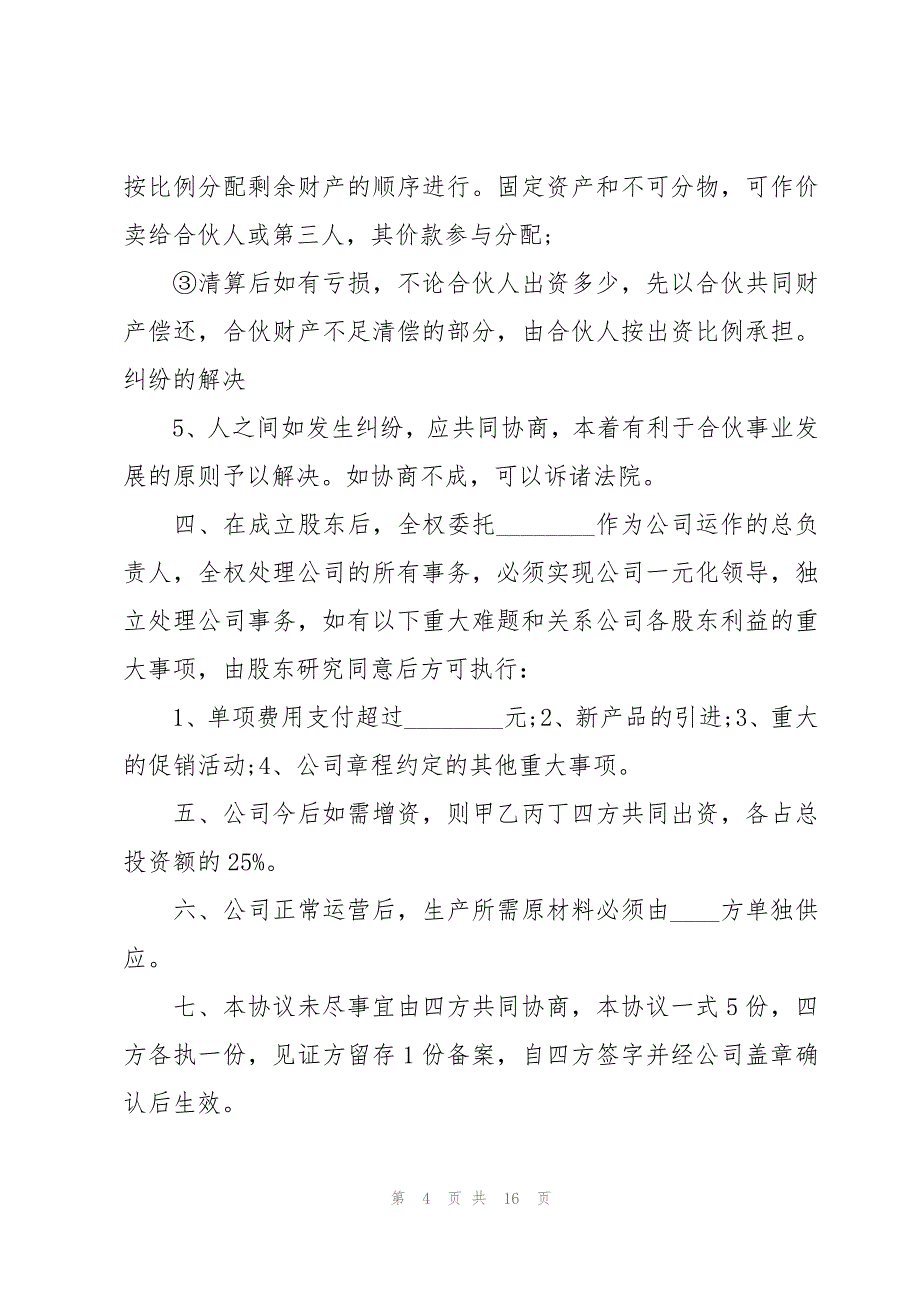 按比例分配剩余财产的顺序进行。固定资产和不可分物，可作价
卖给合伙人或第三人，其价款参与分配;
③清算后如有亏损，不论合伙人出资多少，先以合伙共同财
产偿还，合伙财产不足清偿的部分，由合伙人按出资比例承担。
纠纷的解决
5、人之间如发生纠纷，应共同协商，本着有利于合伙事业发
展的原则予以解决。如协商不成，可以诉诸法院。
四、在成立股东后，全权委托________作为公司运作的总负
责人，全权处理公司的所有事务，必须实现公司一元化领导，独
立处理公司事务，如有以下重大难题和关系公司各股东利益的重
大事项，由股东研究同意后方可执行：
1、单项费用支付超过________元;2、新产品的引进;3、重大
的促销活动;4、公司章程约定的其他重大事项。
五、公司今后如需增资，则甲乙丙丁四方共同出资，各占总
投资额的25%。
六、公司正常运营后，生产所需原材料必须由____方单独供
应。
七、本协议未尽事宜由四方共同协商，本协议一式5份，四
方各执一份，见证方留存1份备案，自四方签字并经公司盖章确
认后生效。
第 4 页 共 16 页